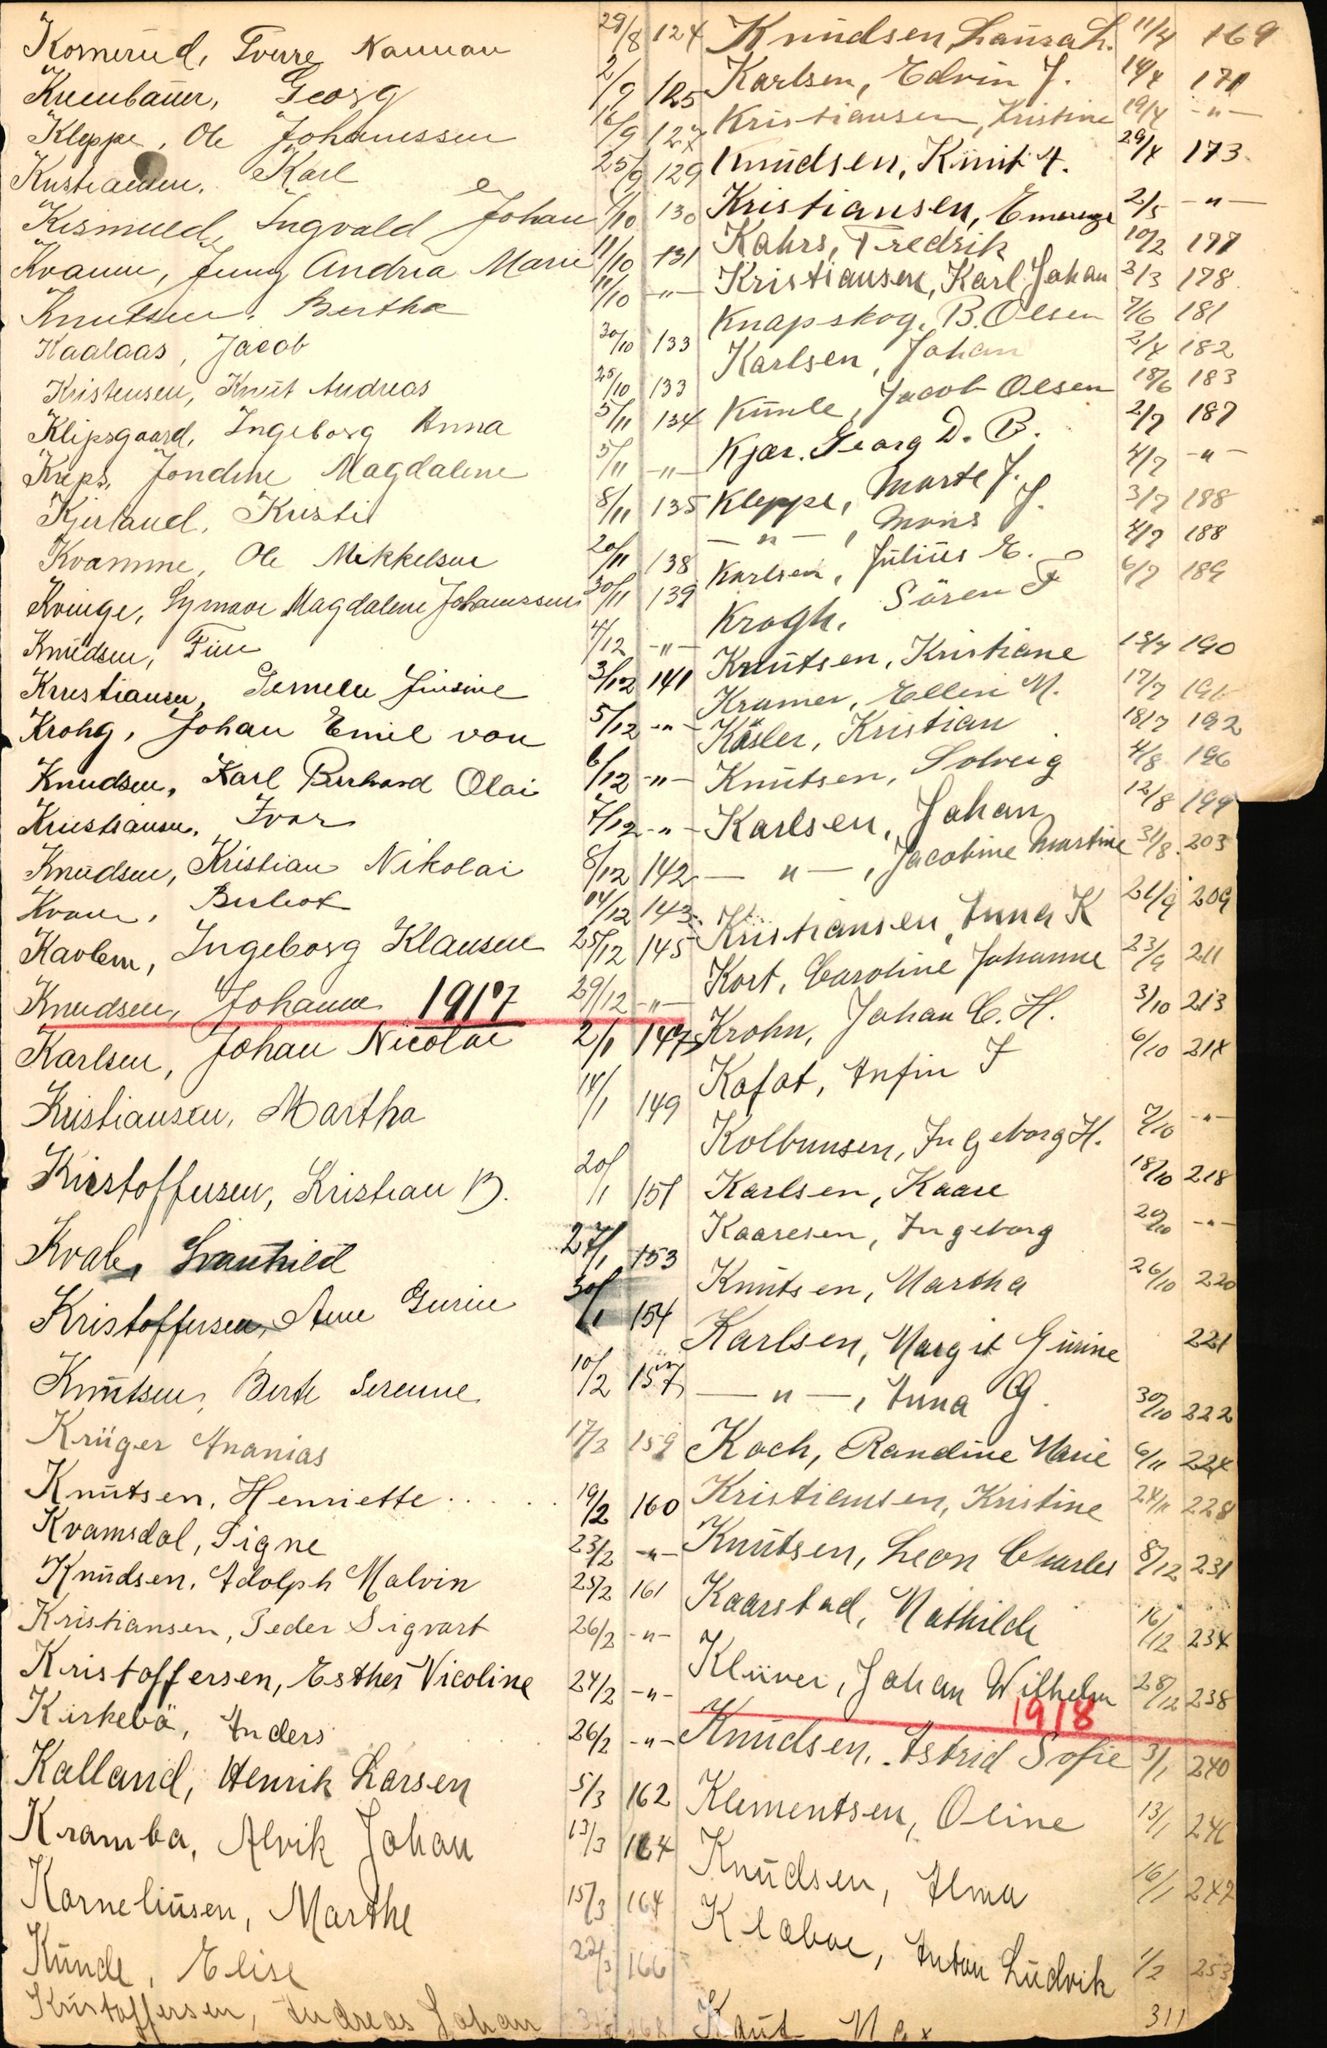 Kornerud, Sverre Nauman 29/8 124
Georg 2/9 125
Kleppe, Ole Johannssen 16/9 127
Kristiansen, Karl 25/9 129
Ingvald Johan /10 130
Kvamm, Jenny Andrea Marie 11/10 131
Knutsen, Bertha 11/10 -"-
Kaalaas, Jacob 30/10 133
Kristensen, Knut Andreas 25/10 133
Klipsgaard, Ingeborg Anna 5/11 134
Kreps, Jondine Magdalene 5/11 -"-
Kjerland, Kristi 8/11 135
Kvamme, Ole Mikkelsen 20/11 138
Kvinge, Synnove Magdalene Johannssen 30/11 139
Knudsen, Finn 4/12 -"-
Kristiansen, Jensine 3/12 141
Krohg, Johan Emil von 5/12 -"-
Knudsen, Karl Bernhard Olai 6/12 -"-
Kristiansen, Ivar 7/12 -"-
Knudsen, Kristian Nikolai 8/12 142
Kvam, 14/12 143
Ingeborg Klausen 25/12 145
Knudsen, Johanne 29/12 -"-
1917
Karlsen, Johan Nicolai 2/1 147
Kristiansen, Martha 14/1 149
Kristoffersen, Kristian B. 20/1 151
Kvale, Svanhild 27/1 153
Kristoffersen, Ane Gurine 30/1 154
Knutsen, Berte Serenne 10/2 157
Krüger Ananias 17/2 159
Knutsen, Henriette..... 19/2 160
Kvamsdal, Signe 23/2 -"-
Knudsen, Adolph Malvin 25/2 161
Kristiansen, Peder Sigvart 26/2 -"-
Kristoffersen, Esther Nicoline 24/2 -"-
Kirkebö, Anders 26/2 -"-
Kalland, Henrik Larsen 5/3 162
Kramba, Alvik Johan 13/3 164
Korneliusen, Marthe 15/3 164
Kunde, Elise 22/3 166
Kristoffersen, Andreas Johan 168
Knudsen, Laura L. 11/4 169
Karlsen, Edvin J. 14/4 171
Kristiansen, Kristine 19/4 -"-
Knudsen, Knut A. 29/4 173
Kristiansen, Emerenze 2/5 -"-
Kahrs, Fredrik 10/2 177
Kristiansen, Karl Johan 2/3 178
Knapskog, B. Olsen 7/6 181
Karlsen, Johan 2/4 182
Künle, Jacob Olsen 18/6 183
Kjær, Georg D. B. 2/7 187
Kleppe, Marte J. 4/7 -"-
-"-, Mons J. 3/7 188
Karlsen, Julius E. 4/7 188
Krogh, Sören F 6/7 189
Knutsen, Kristiane 13/7 190
Kramer, Ellen M. 17/7 191
Käsler, Kristian 18/7 192
Knutsen, Solveig 4/8 196
Karlsen, Johan 12/8 199
-"-, Jacobine Martine 31/8 203
Kristiansen, Anna K 21/9 209
Kort, Caroline Johanne 23/9 211
Krohn, Johan C. H. 3/10 213
Kofot, Anfin J 6/10 214
Kolbunsen, Ingeborg H. 7/10 -"-
Karlsen, Kaare 18/10 218
Kaaresen, Ingeborg 20/10 -"-
Knutsen, Martha 26/10 220
Karlsen, Margit Gurine 221
-"-, Anna G. 30/10 222
Koch, Randine Marie 6/11 224
Kristiansen, Kristine 24/11 228
Knutsen, Leon Charles 8/12 231
Kaarstad, Mathilde 16/12 234
Klüver, Johan Wilhelm 28/12 238
1918
Knudsen, Astrid Sofie 3/1 240
Klementsen, Oline 13/1 246
Knudsen, Alma 16/1 247
Klaboe, Anton Ludvik 1/2 253
Knut Max 311